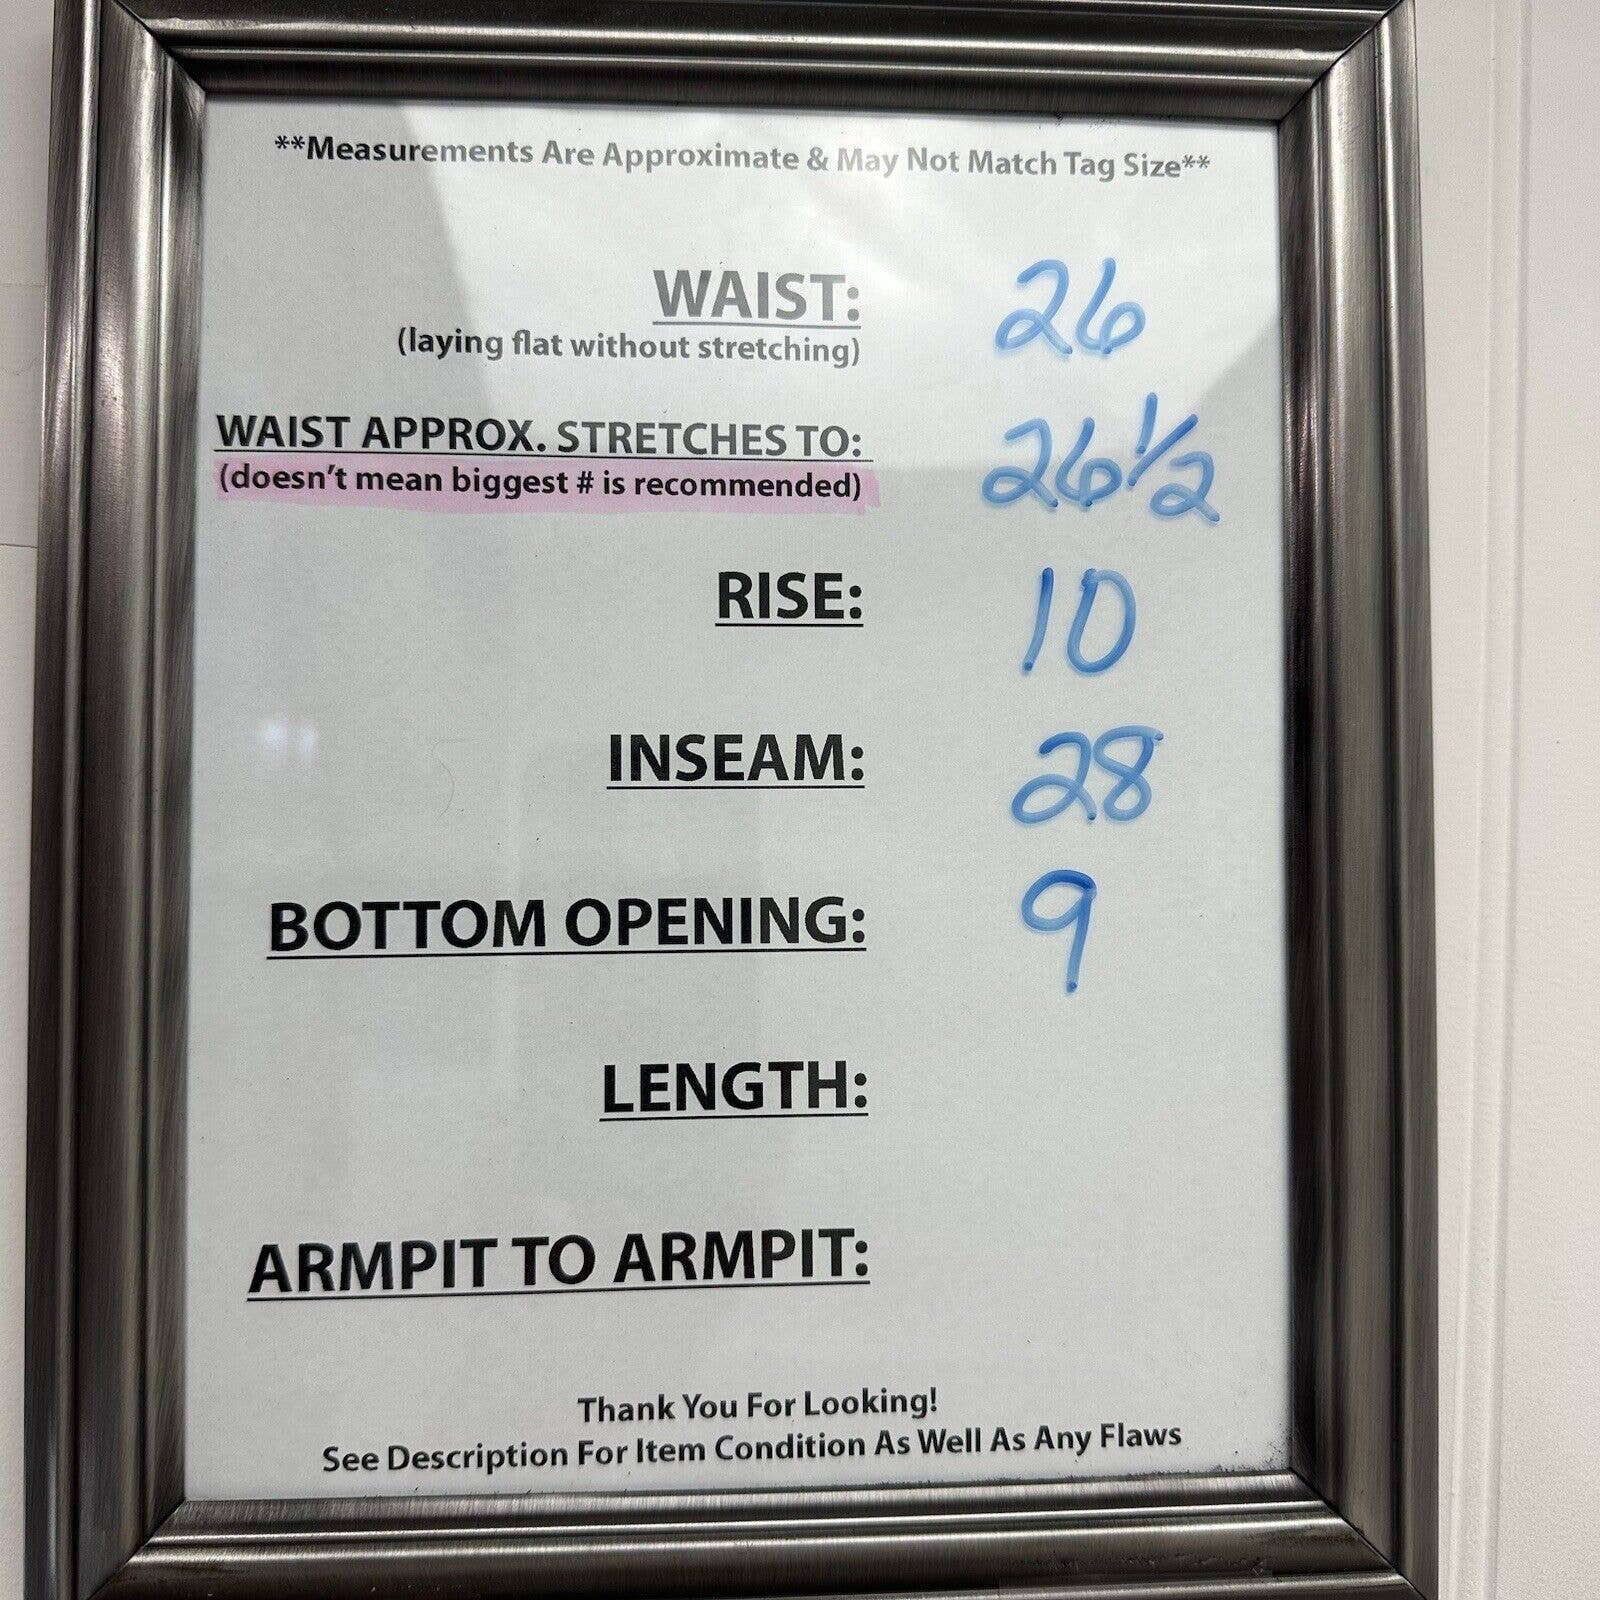 **Measurements Are Approximate & May Not Match Tag Size**
WAIST: 26
(laying flat without stretching)
WAIST APPROX. STRETCHES TO: 26 1/2
(doesn't mean biggest # is recommended)
RISE: 10
INSEAM: 28
BOTTOM OPENING: 9
LENGTH:
ARMPIT TO ARMPIT:
Thank You For Looking!
See Description For Item Condition As Well As Any Flaws